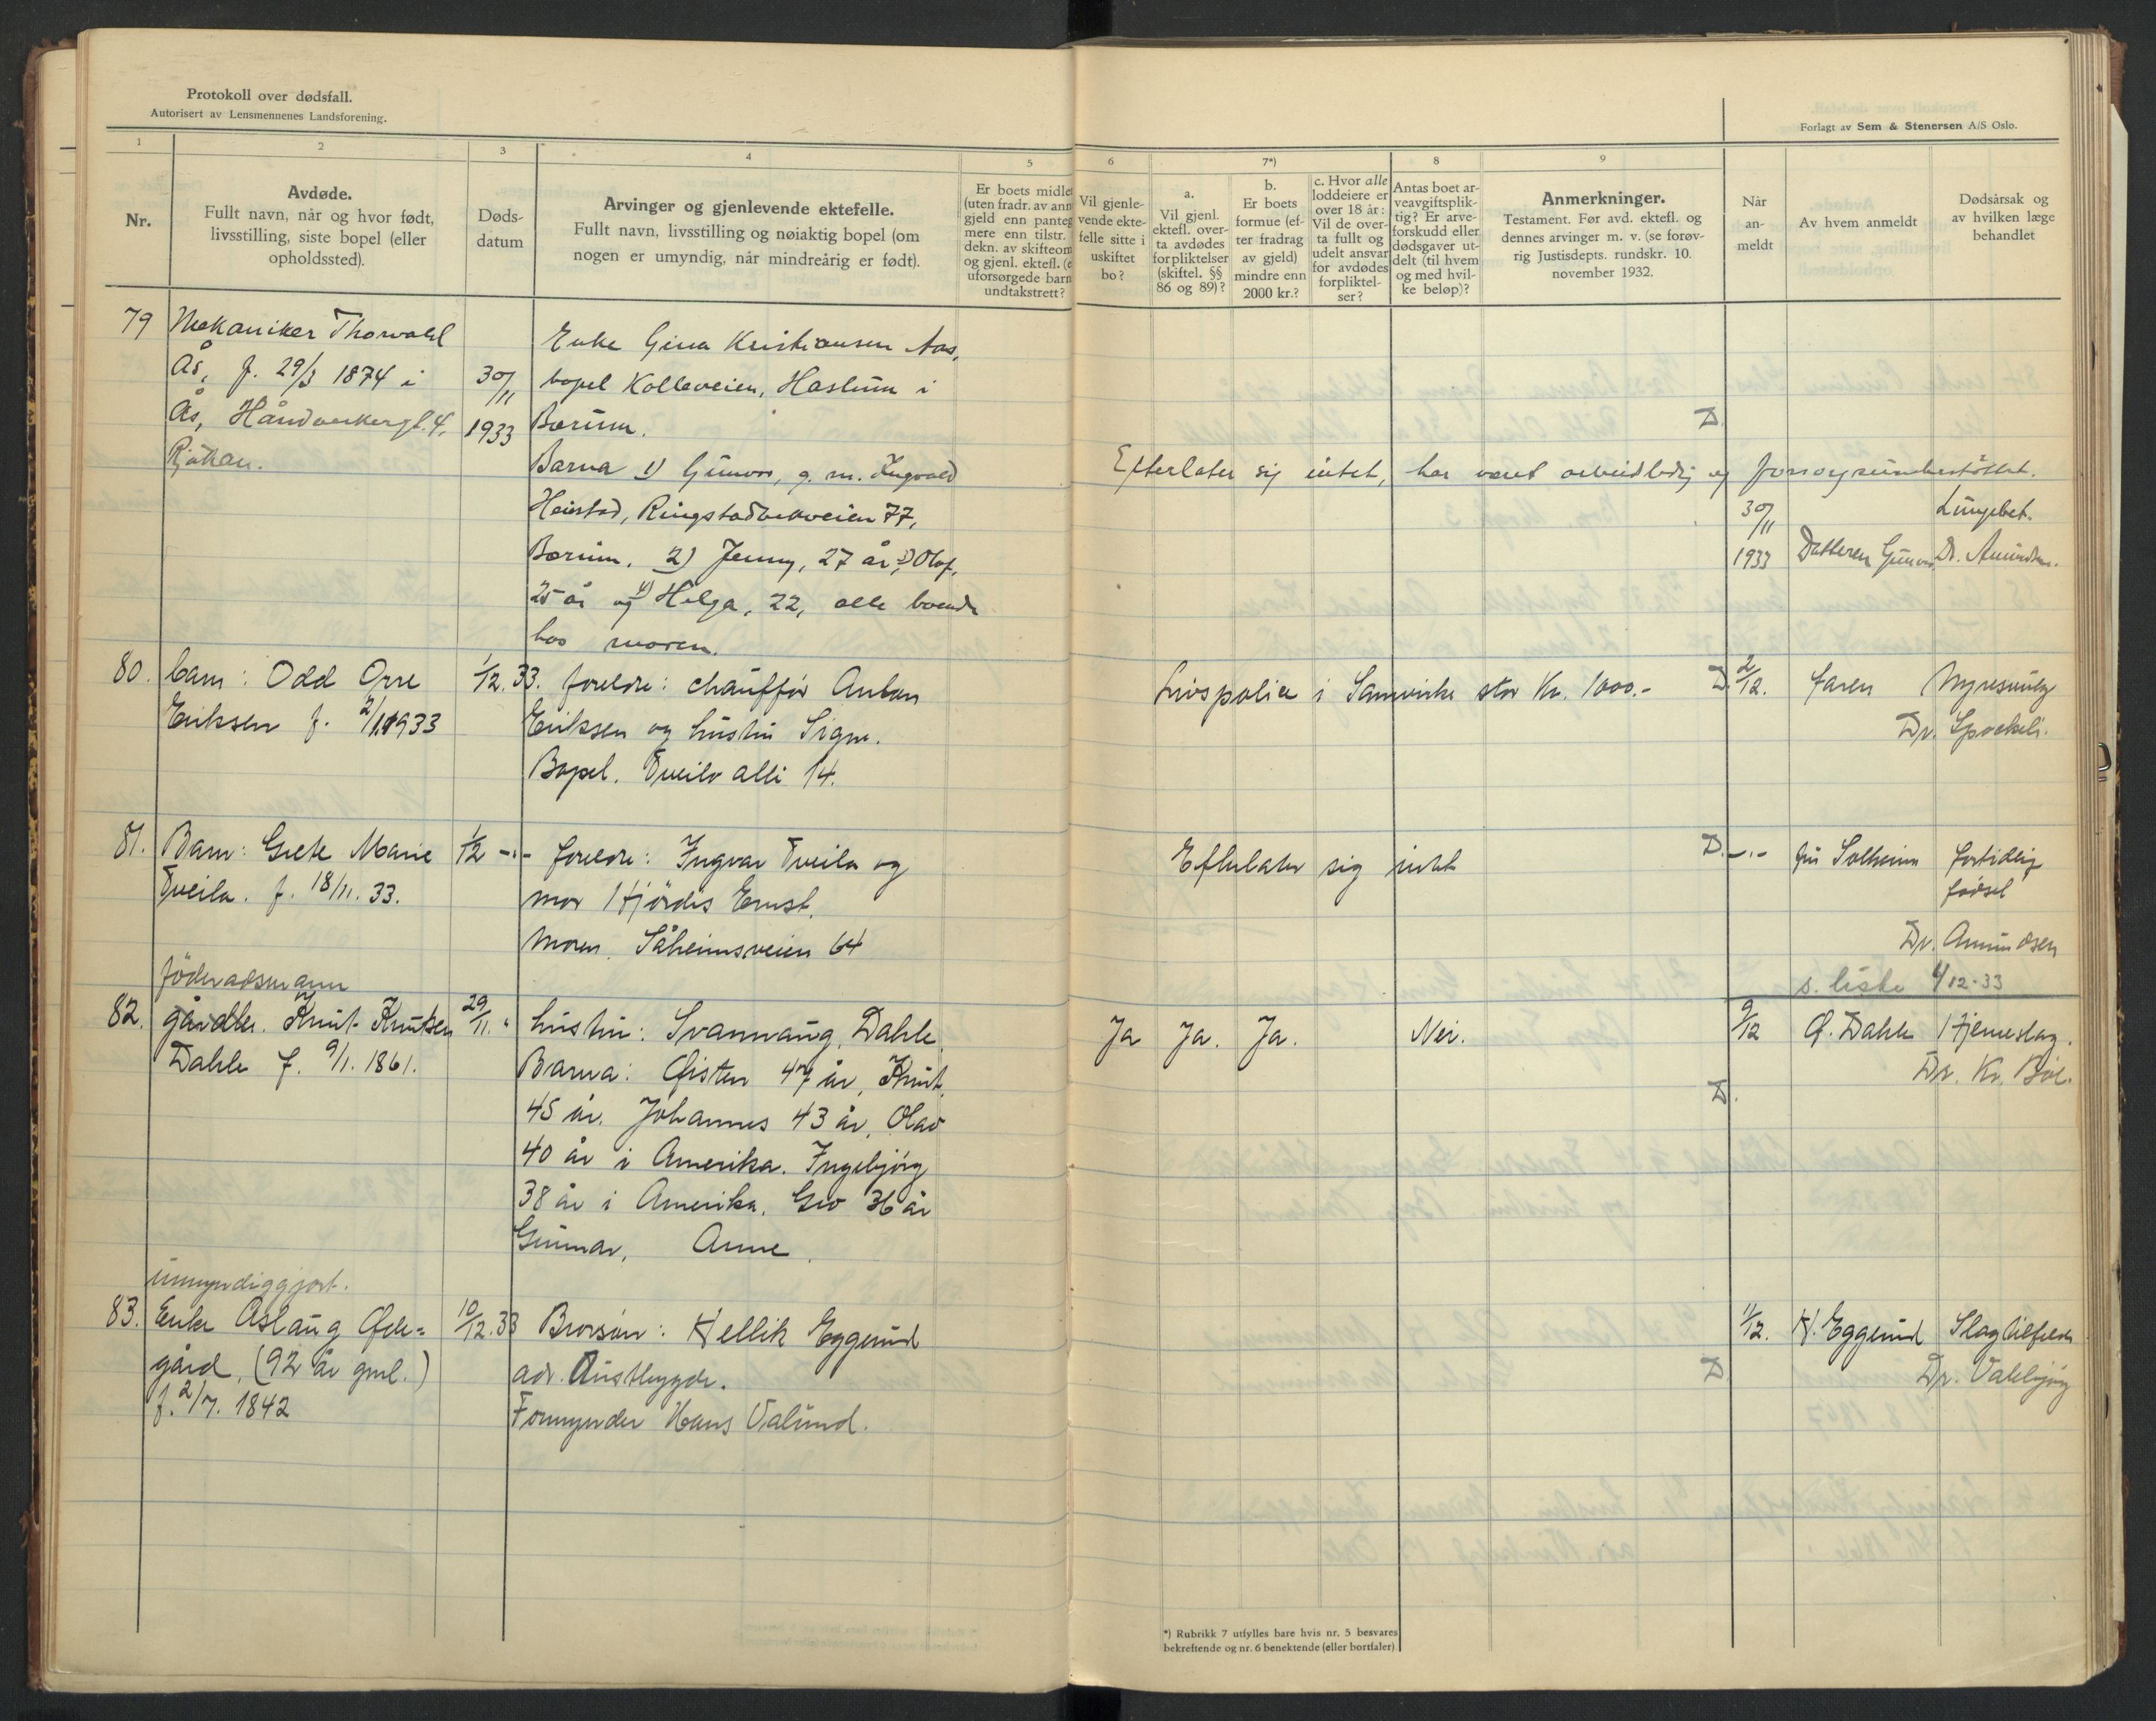 Protokoll over dødsfall.
Autorisert av Lensmennenes Landsforening.
Forlagt av Sem & Stenersen A/S Oslo.
1
2
3
4
5
6
7*)
8
9
Nr.
Avdøde.
Fullt navn, når og hvor født,
livsstilling, siste bopel (eller
opholdssted).
Døds-
datum
Arvinger og gjenlevende ektefelle.
Fullt navn, livsstilling og nøiaktig bopel (om
nogen er umyndig, når mindreårig er født).
Er boets midle
(uten fradr. av ann
gjeld enn panteg
mere enn tilstr.
dekn. av skifteom
og gjenl. ektefl. (e
uforsørgede barn
undtakstrett?
Vil gjenle-
vende ekte-
felle sitte i
uskiftet
bo?
a.
Vil gjenl.
ektefl. over-
ta avdødes
forpliktelser
(skiftel. §§
86 og 89)?
b.
Er boets
formue (ef-
ter fradrag
av gjeld)
mindre enn
2000 kr.?
c. Hvor alle
loddeiere er
over 18 år:
Vil de over-
ta fullt og
udelt ansvar
for avdødes
forpliktel-
ser?
Antas boet ar-
veavgiftsplik-
tig? Er arve-
forskudd eller
dødsgaver ut-
delt (til hvem
og med hvil-
ke beløp)?
Anmerkninger.
Testament. Før avd. ektefl. og
dennes arvinger m. v. (se forøv-
rig Justisdepts. rundskr. 10.
november 1932.
Når
an-
meldt
Av hvem anmeldt
Dødsårsak og
av hvilken læge
behandlet
79
Mekaniker Thorvald
Ås, f. 29/3 1874 i
Ås, Håndverkergt. 4,
Rjukan.
30/11
1933
Enke Gina Kristiansen Aas,
bopel Kolleveien, Haslum i
Bærum.
Barna 1) Gunvor, g. m. Ingvald
Heistad, Ringstadbekveien 77,
Bærum, 2) Jenny, 27 år, 3) Olaf,
25 år og 4) Helga, 22, alle boende
hos moren.
D.
Efterlater sig intet, har været arbeidledig og forsorgsunderstøttet.
30/11
1933
Datteren Gunvor
Lungebet.
Dr. Amundsen.
80.
barn: Odd Orre
Eriksen f. 2/11 1933
1/12. 33.
foreldre: chauffør Anton
Eriksen og hustru Signe.
Bopel. Tveito alle 14.
Livspolise i Samvirke stor Kr. 1000.-
D.
2/12.
faren
Nyresvulg
Dr.
81.
Barn: Grete Marie
Tveita. f. 18/11. 33.
1/12 -"-
foreldre: Ingvar Tveita og
mor Hjördis Ernst.
Moren. Såheimsveien 64
Efterlater sig intet
D.
-"-
fru Solheim
fortidlig
födsel
Dr. Amundsen
s. liste 4/12-33
82.
föderådsmann
gårdbr. Knut Knutsen
Dahle f. 9/1. 1861.
29/11. "
hustru: Svannaug Dahle
Barna: Øisten 47 år, Knut
45 år. Johannes 43 år, Olav
40 år i Amerika. Ingebjörg
38 år i Amerika. Gro 36 år
Gunnar, Anne.
Ja
Ja.
Ja.
Nei.
D.
9/12
Ø. Dahle
Hjerneslag.
Dr. Kr. Bøe.
83.
umyndiggjort.
Enke Aslaug Øde-
gård, (92 år gml.)
f. 2/7. 1842
10/12. 33
Brorsön: Kjellik Eggerud
adr. Austbygde.
Formynder Hans Valund.
D
11/12.
K. Eggerud
Slagtilfelde
Dr.
*) Rubrikk 7 utfylles bare hvis nr. 5 besvares
bekreftende og nr. 6 benektende (eller bortfaler).